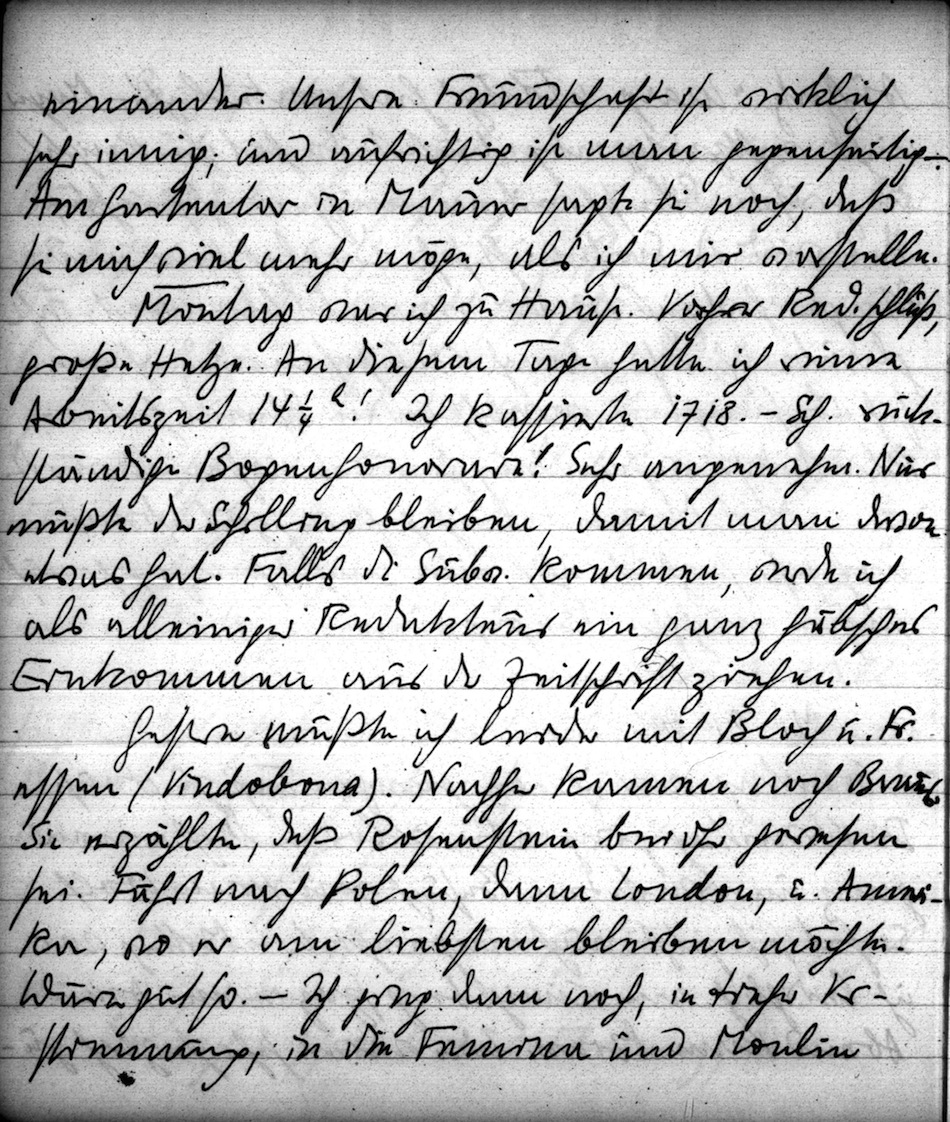 einander. Unsere Freundschaft ist wirklich
sehr innig; und aufrichtig ist man gegenseitig.
Am Gartentor in Mauer sagte sie noch, daß
sie mich viel mehr möge, als ich mir vorstelle.
Montag war ich zu Hause. Vorher Red.schluß,
große Hetze. An diesem Tage hatte ich eine
Arbeitszeit 14 1/4 h! Ich kassierte 1718.– Sch. rück-
ständige Bogenhonorare! Sehr angenehm. Nur
müßte der Schilling bleiben, damit man davon
etwas hat. Falls die Subv. kommen, werde ich
als alleiniger Redakteur ein ganz hübsches
Einkommen aus der Zeitschrift ziehen.
Gestern mußte ich leider mit Bloch u. Fr.
essen (Vindobona). Nachher kamen noch
Sie erzählte, daß Rosenstein bei ihr gewesen
sei. Fährt nach Polen, dann London, u. Ameri-
ka, wo er am liebsten bleiben möchte.
Wäre gut so. – Ich ging dann noch, in Ver-
stimmung, in die Femina und Moulin